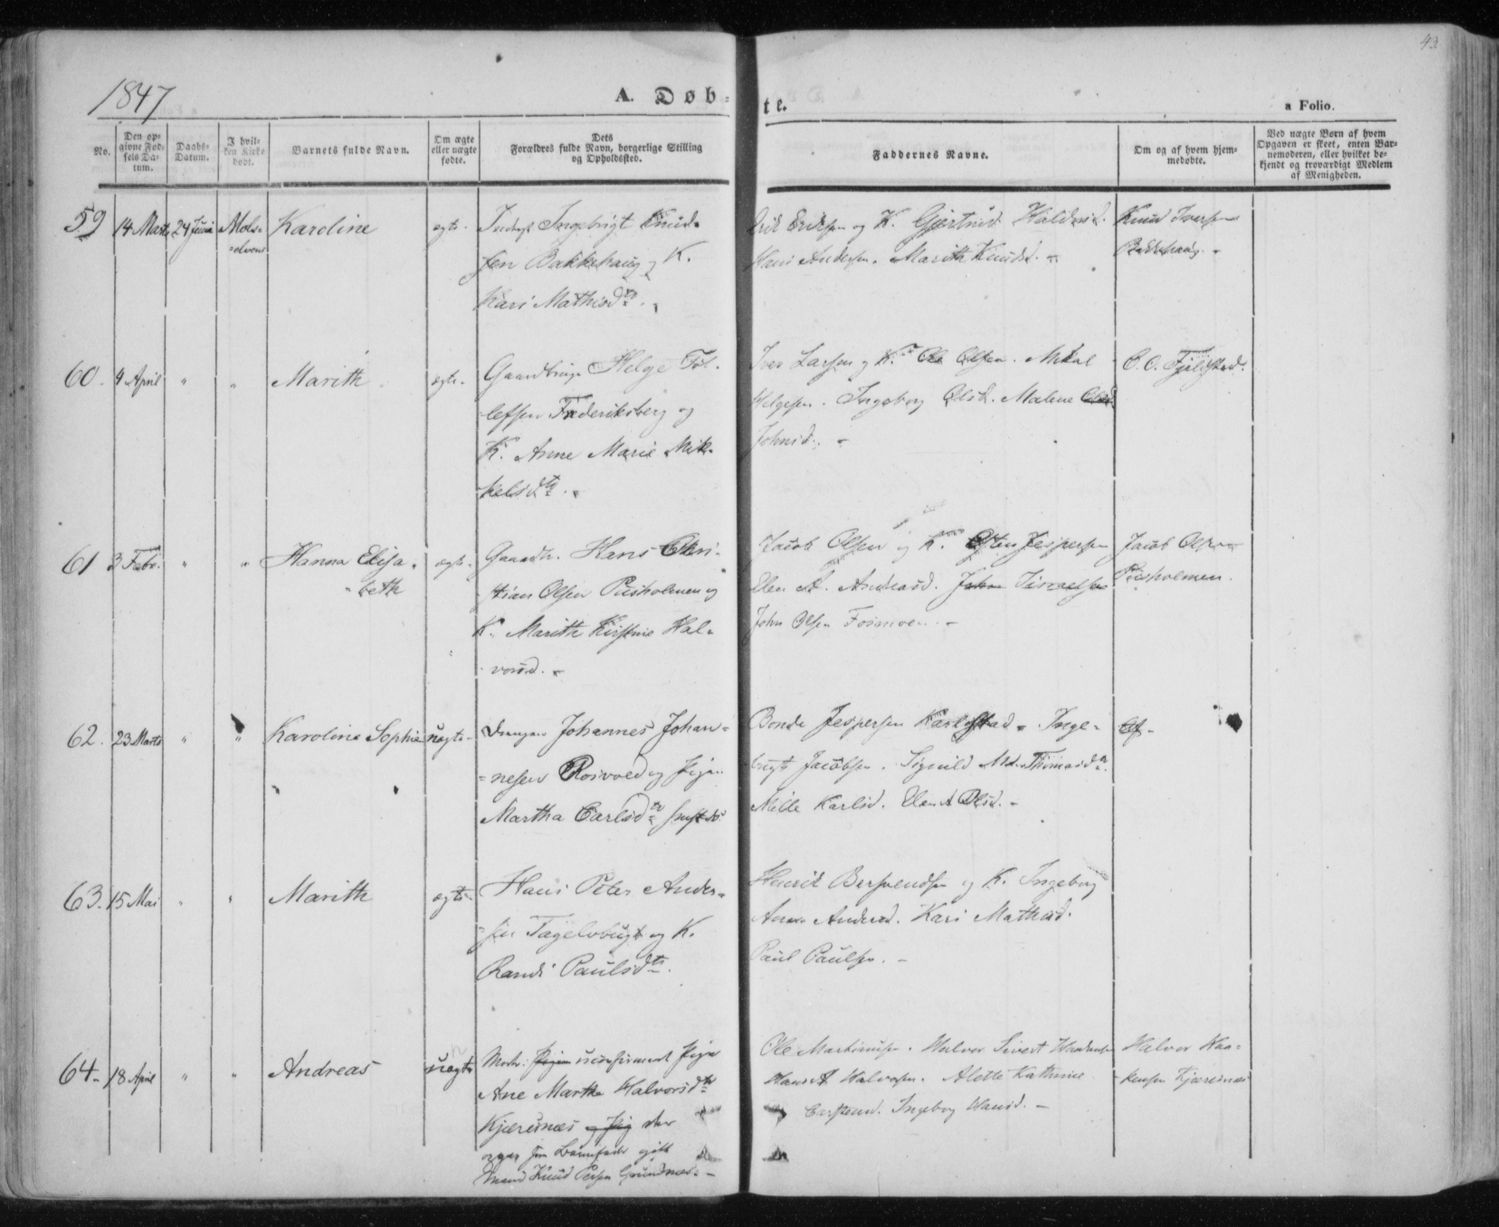 43
1847
A. Døb-
te.
a Folio.
No.
Den op-
givne Fød-
sels Da-
tum.
Daabs-
Datum.
I hvil-
ken Kirke
døbt.
Barnets fulde Navn.
Om ægte
eller uægte
fødte.
Dets
Forældres fulde Navn, borgerlige Stilling
og Opholdssted.
Faddernes Navne.
Om og af hvem hjem-
medøbte.
Ved uægte Børn af hvem
Opgaven er skeet, enten Bar-
nemoderen, eller hvilket be-
kjendt og troværdigt Medlem
af Menigheden.
59
14 Marts
24 Juni
Karoline
ægte.
Ingebrigt Knud-
sen Bakkehaug og K.
Kari Mathisdtr.
Erik Eriksen og K. Gjertrud
Hans Andersen. Marith Knudsd. -
Knud Iversen
Bakkehaug. -
60.
4 April
"
"
Marith
ægte.
Gaardbruger Helge Tol-
lefsen Frederiksberg og
K. Anne Marie Mik-
kelsdtr. -
Iver Larsen og K. Ole Olsen. Mikal
Helgesen. Ingeborg Olsd. Malene
Johnsd. -
O. O. Fjeldstad.
61
3 Febr.
"
"
Hanna Elisa-
beth
ægte.
Gaardbr. Hans Chri-
stian Olsen Puusholmen og
K. Marith Kirstine Hal-
vorsd. -
Jacob Olsen og K. Jespersen
Elen A. Andreasd. John Ismaelsen
John Olsen Fosmoen. -
Jacob Olsen
Puusholmen.
62.
23 Marts
"
"
Karoline Sophie
uægte.
Drengen Johannes Johan-
nesen Rosvold og Pigen
Martha Carlsdtr
Bonde Jespersen Karlstad. Inge-
brigt Jacobsen. Thomasdtr.
Karlsd. Elen A Olsd. -
63.
15 Mai
"
"
Marith
ægte.
Hans Peter Ander-
sen Fagelvbugt og K.
Randi Paulsdtr.
Henrik Berntsen og K. Ingeborg
Anne Andersd. Kari Mathisd.
Paul Paulsen. -
64.
18 April
"
"
Andreas
uægte
Moder: Pigen uconfirmert Pige
Ane Marthe Halvorsdtr
Kjæresnæs og Pig der
Barnefader gift
Mand Knud Persen Grundnæs. -
Ole Martinusen. Halvor Sivert
Hans A Halvorsen. Alette Kathrine
Ingeborg Hansd. -
Halvor Haa-
kensen Kjæresnæs